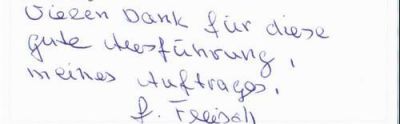 Vielen Dank für diese
gute Ausführung,
meines Auftrages.
f. Freisch